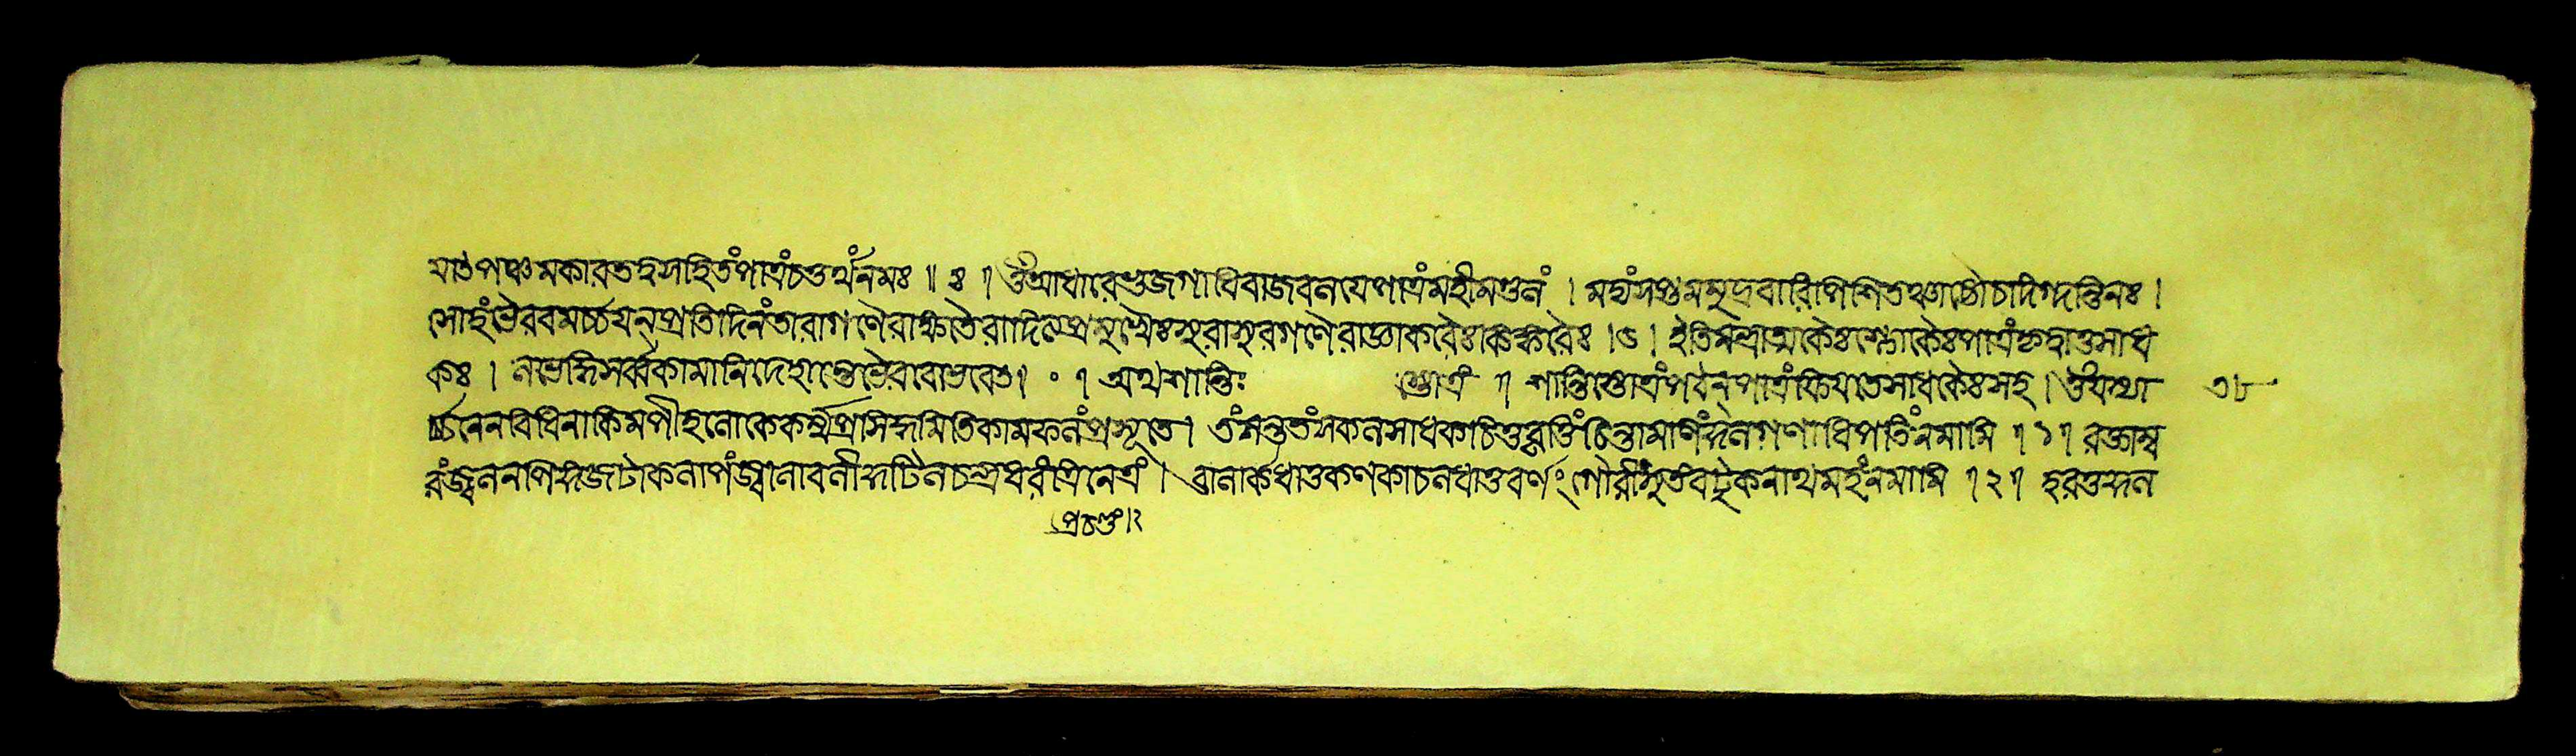 মাতপঞ্চমকারতত্ত্বসহিতং পাত্রং চতুর্থং নমঃ ॥ ৪ ॥ ওঁ আধারে ভুজগাধিরাজবলয়ে পাত্রং মহীমণ্ডলং । মদ্যং সপ্তমসমুদ্রবারিপিশিতঞ্চাষ্টৌ চ দিগ্দন্তিনঃ ।
সোহং ভৈরবমর্চ্চয়ন্ প্রতিদিনং তারাগণৈরাক্ষতৈরাদিত্যপ্রমুখৈঃ সুরাসুরগণৈরাজ্ঞাকরৈঃ কিঙ্করৈঃ । ৫ । ইতি মন্ত্রাত্মকৈঃ শ্লোকৈঃ পাত্রং গৃহ্ণাতু সাধ
কঃ । লভেদ্ধি সর্ব্বকামানি দেহান্তে ভৈরবো ভবেৎ । ০ । অথ শান্তিঃ স্তোত্রং ॥ শান্তিস্তোত্রং পঠন্ পাত্রং সাধকৈঃ সহ । ওঁ যস্যা ৩৮
র্চ্চনেন বিধিনা কিমপীহ লোকে কর্ম্মপ্রসিদ্ধমিতি কামফলং প্রসূতে । তং সন্ততং সকলসাধকচিত্তবৃত্তিং চিন্তামণিং গণাধিপতিং নমামি ॥ ১ ॥ রক্তাম্ব
রং জ্বলনপিঙ্গজটাকলাপং জ্বালাবলী কুটিলচন্দ্রধরং ত্রিনেত্রং । বালার্কধাতুকণকাচলধাতুবর্ণং গৌরীসুতং বটুকনাথমহং নমামি ॥ ২ ॥ হরতু কুল
প্রচণ্ডং ।২